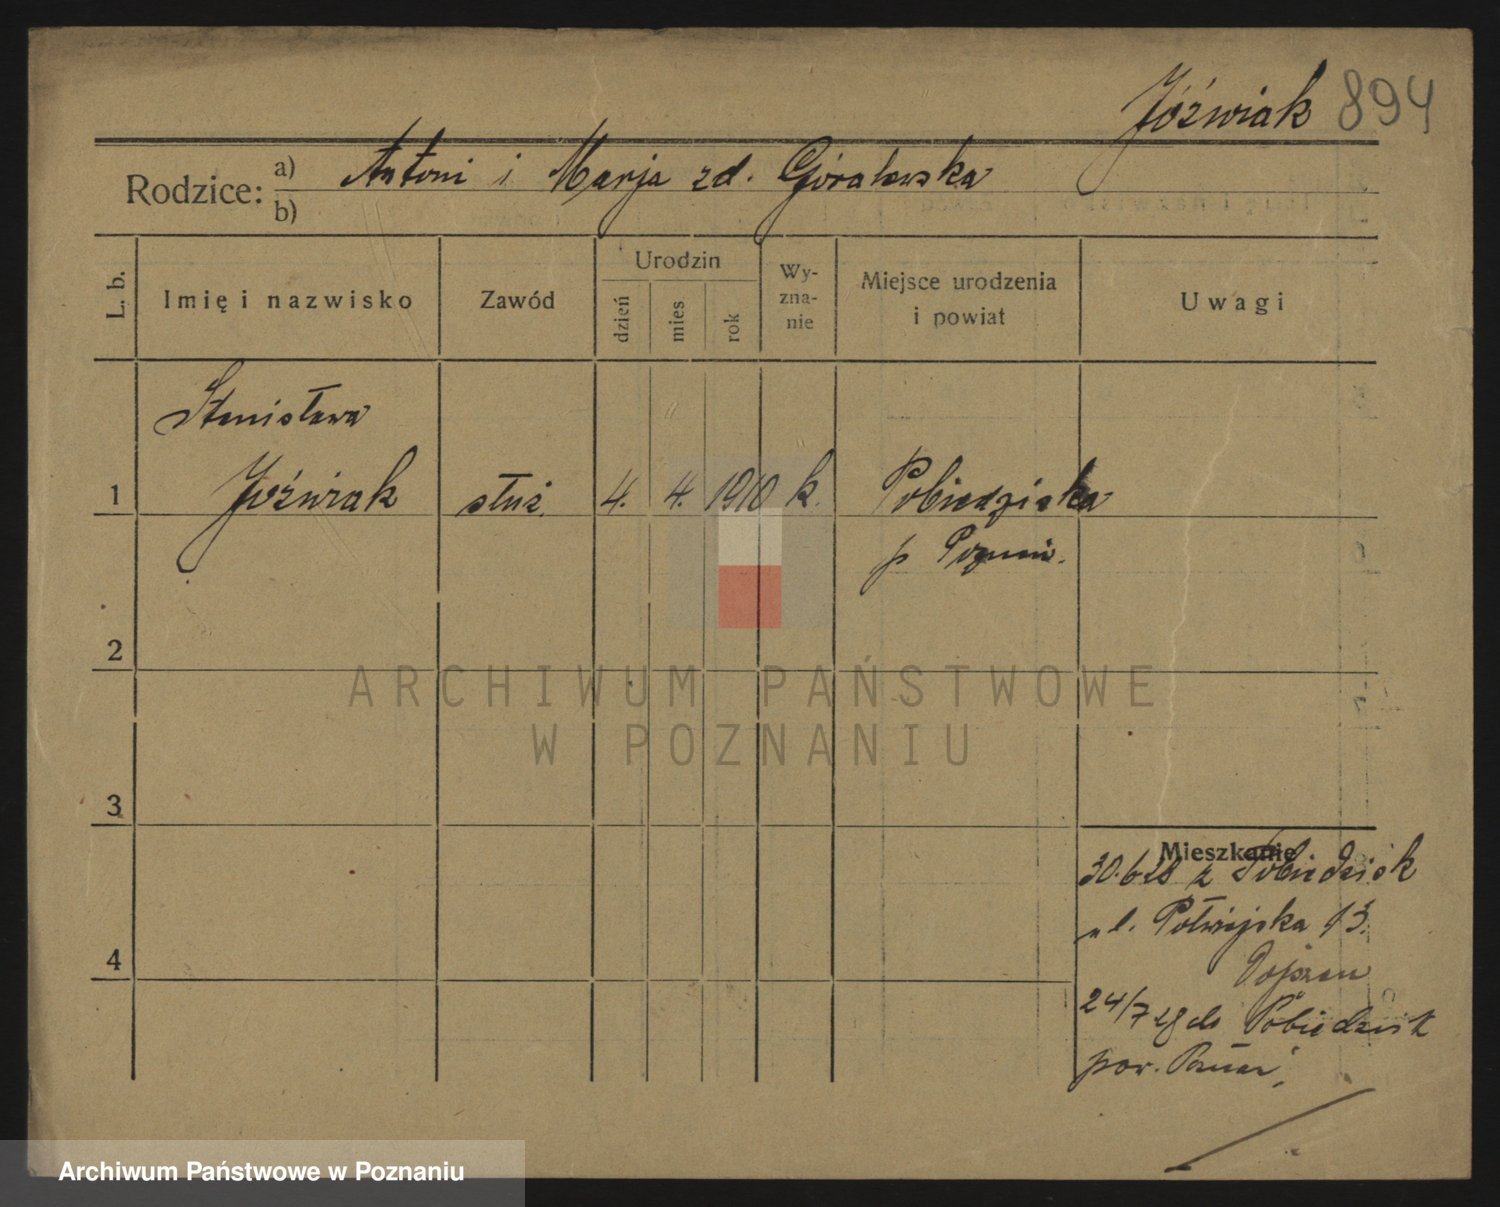 Jóźwiak 894
Rodzice: a) Antoni i Marja zd. Góralewska
b)
L. b.
Imię i nazwisko
Zawód
Urodzin
dzień
mies
rok
Wy-
zna-
nie
Miejsce urodzenia
i powiat
Uwagi
Stanisława
1 Jóźwiak służ. 4. 4. 1910 k. Pobiedziska
p Poznań.
2
3
4
Mieszkanie
30.6 28 z Pobiedzisk
ul. 13.
24/7 28 do Pobiedzisk
pow.
ARCHIWUM PAŃSTWOWE
W POZNANIU
Archiwum Państwowe w Poznaniu